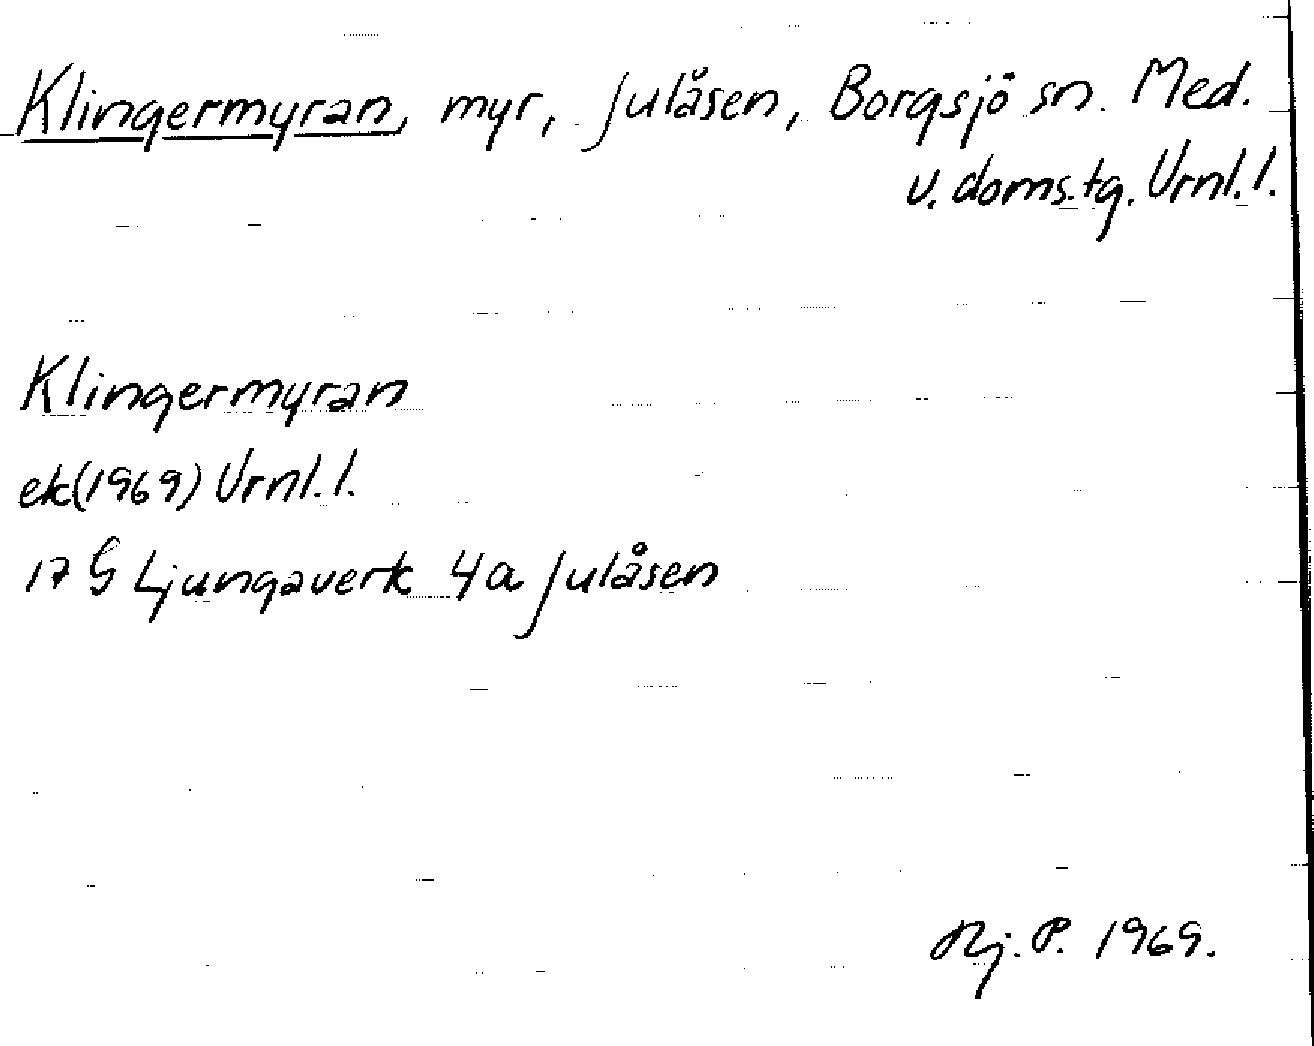 Klingermyran, myr, Julåsen, Borgsjö sn. Med.
v. doms.tg. Vrnl. l.
Klingermyran
ek (1969) Vrnl. l.
17 G Ljungaverk 4a Julåsen
Rj. P. 1969.